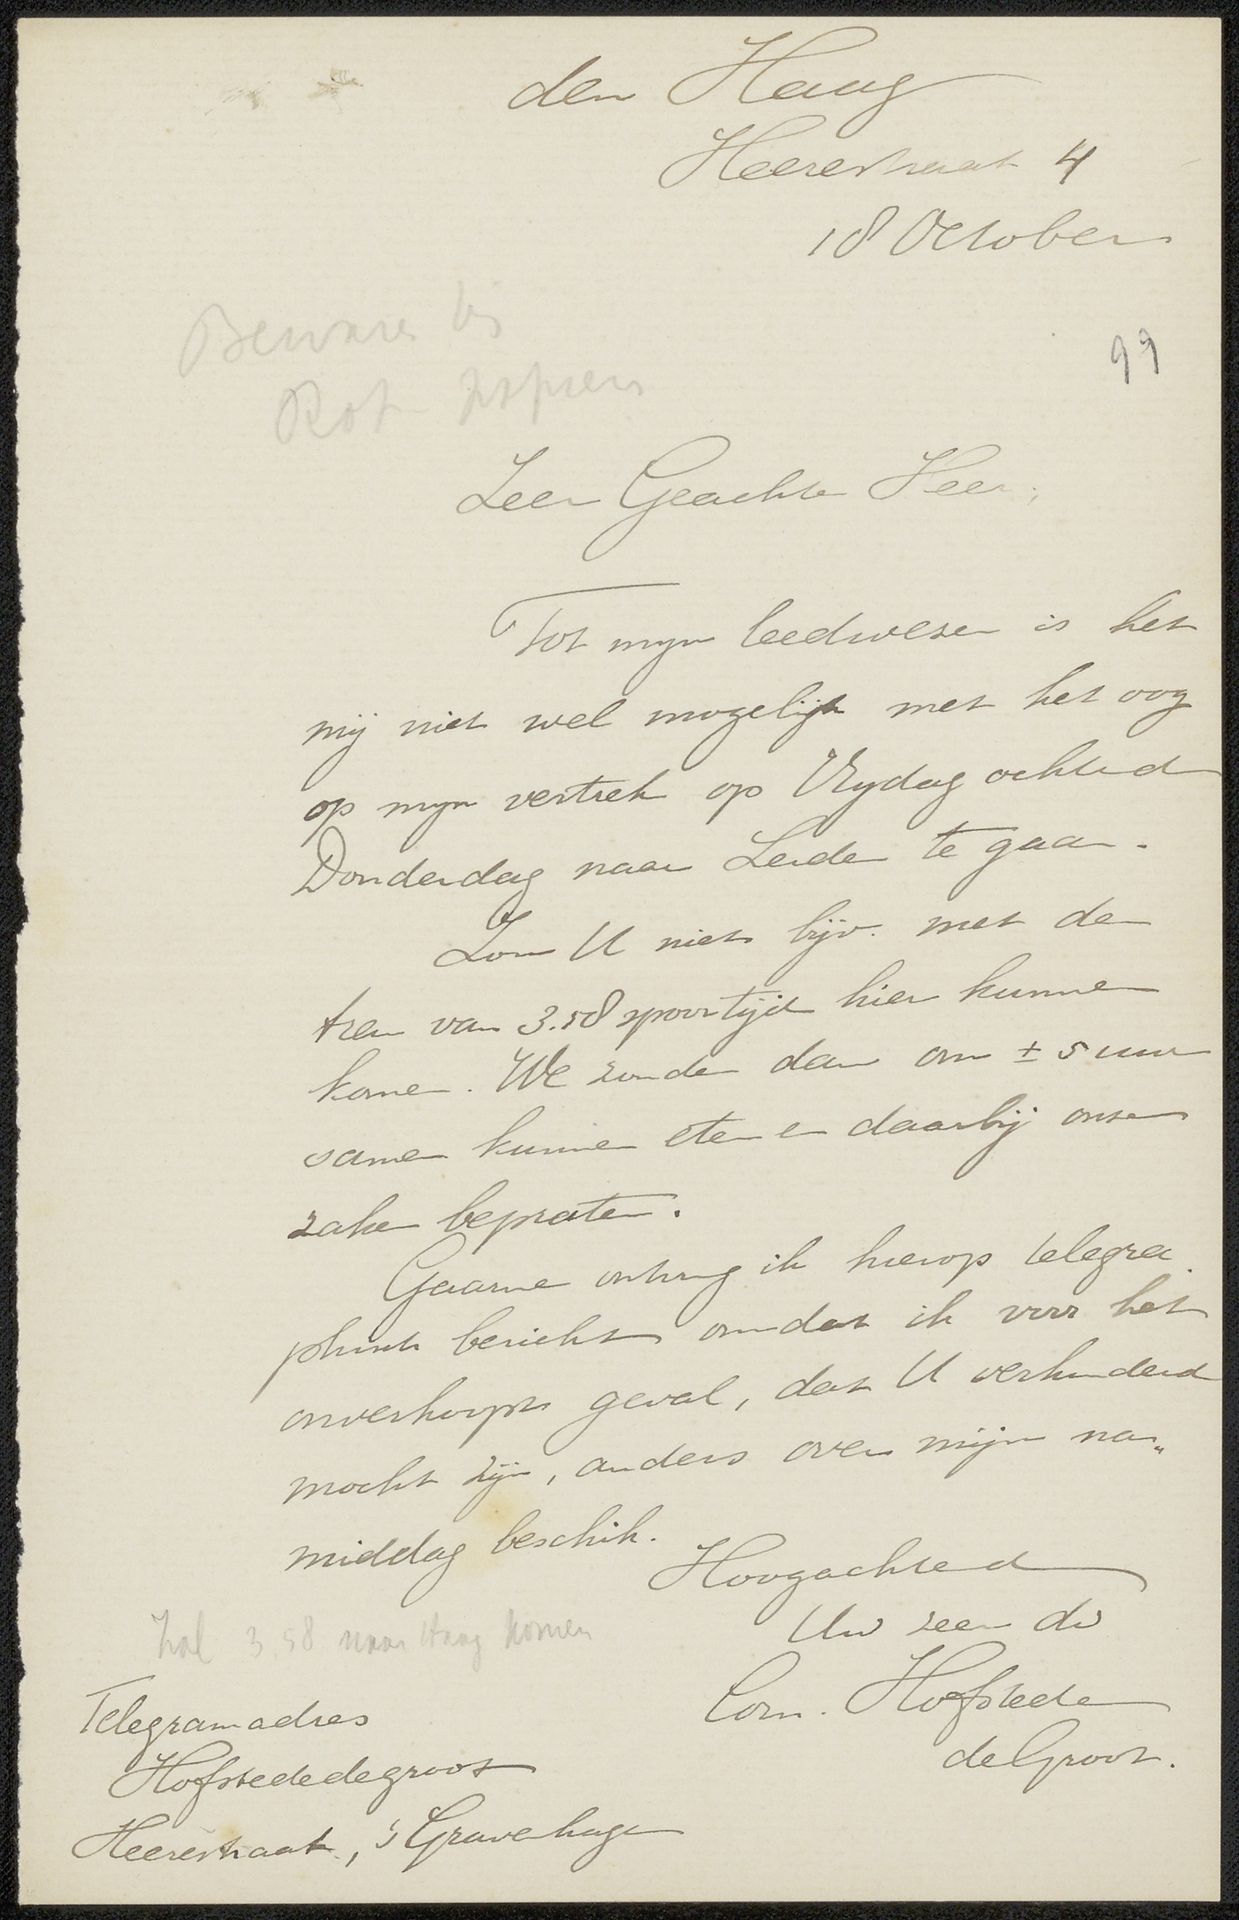 den Haag
Heerestraat 4
18 October
99
Bewaren bij
Rot
Zeer Geachte Heer,
Tot mijn leedwezen is het
mij niet wel mogelijk met het oog
op mijn vertrek op Vrijdag ochtend
Donderdag naar Leiden te gaan.
Zou U niet bijv. met den
trein van 3.58 spoortijd hier kunnen
komen. We zouden dan om ± 5 uur
samen kunnen eten en daarbij onze
zaken bepraten.
Gaarne ontving ik hierop telegra
phisch bericht omdat ik voor het
onverhoopte geval, dat U verhinderd
mocht zijn, anders over mijn na„
middag beschik.
Hoogachtend
Uw zeer dw
Corn. Hofstede
de Groot.
Zal 3.58 naar Haag komen
Telegramadres
Hofstededegroot
Heerestraat, 's Gravenhage